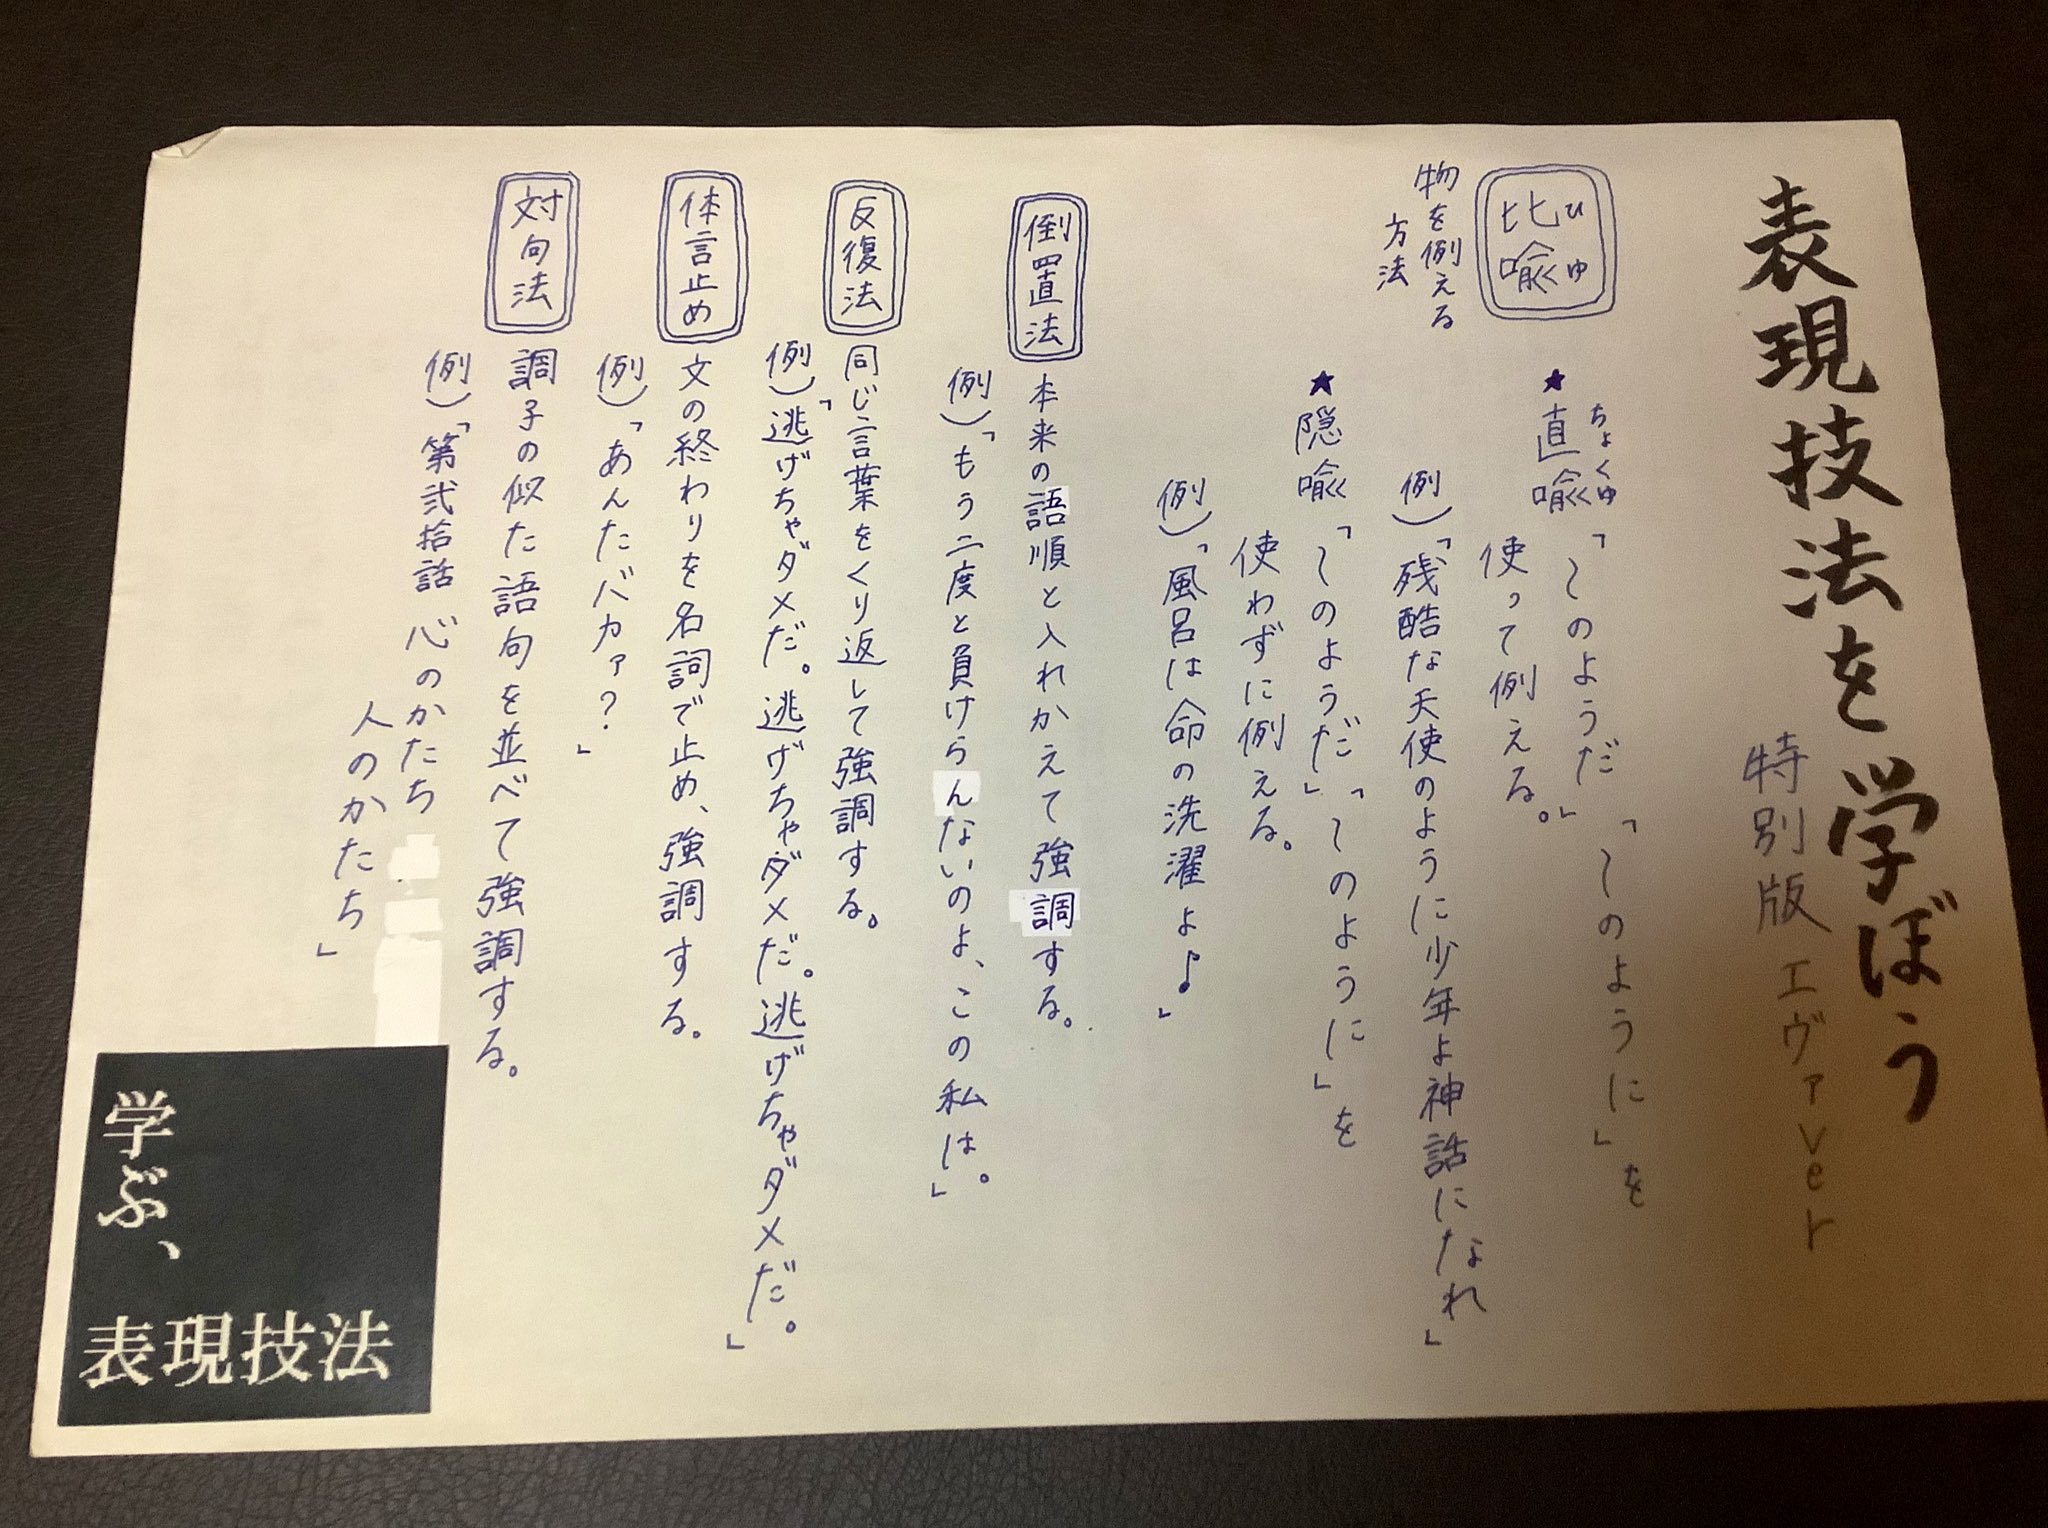 表現技法を学ぼう
特別版 エヴァver
比喩
ひゆ
物を例える
方法
★直喩「～のようだ」「～のように」を
ちょくゆ
使って例える。
例)「残酷な天使のように少年よ神話になれ」
★隠喩「～のようだ」「～のように」を
使わずに例える。
例)「風呂は命の洗濯よ♪」
倒置法 本来の語順と入れかえて強調する。
例)「もう二度と負けらんないのよ、この私は。」
反復法 同じ言葉をくり返して強調する。
例)「逃げちゃダメだ。逃げちゃダメだ。逃げちゃダメだ。」
体言止め 文の終わりを名詞で止め、強調する。
例)「あんたバカァ？」
対句法 調子の似た語句を並べて強調する。
例)「第弐拾話 心のかたち
人のかたち」
学ぶ、
表現技法